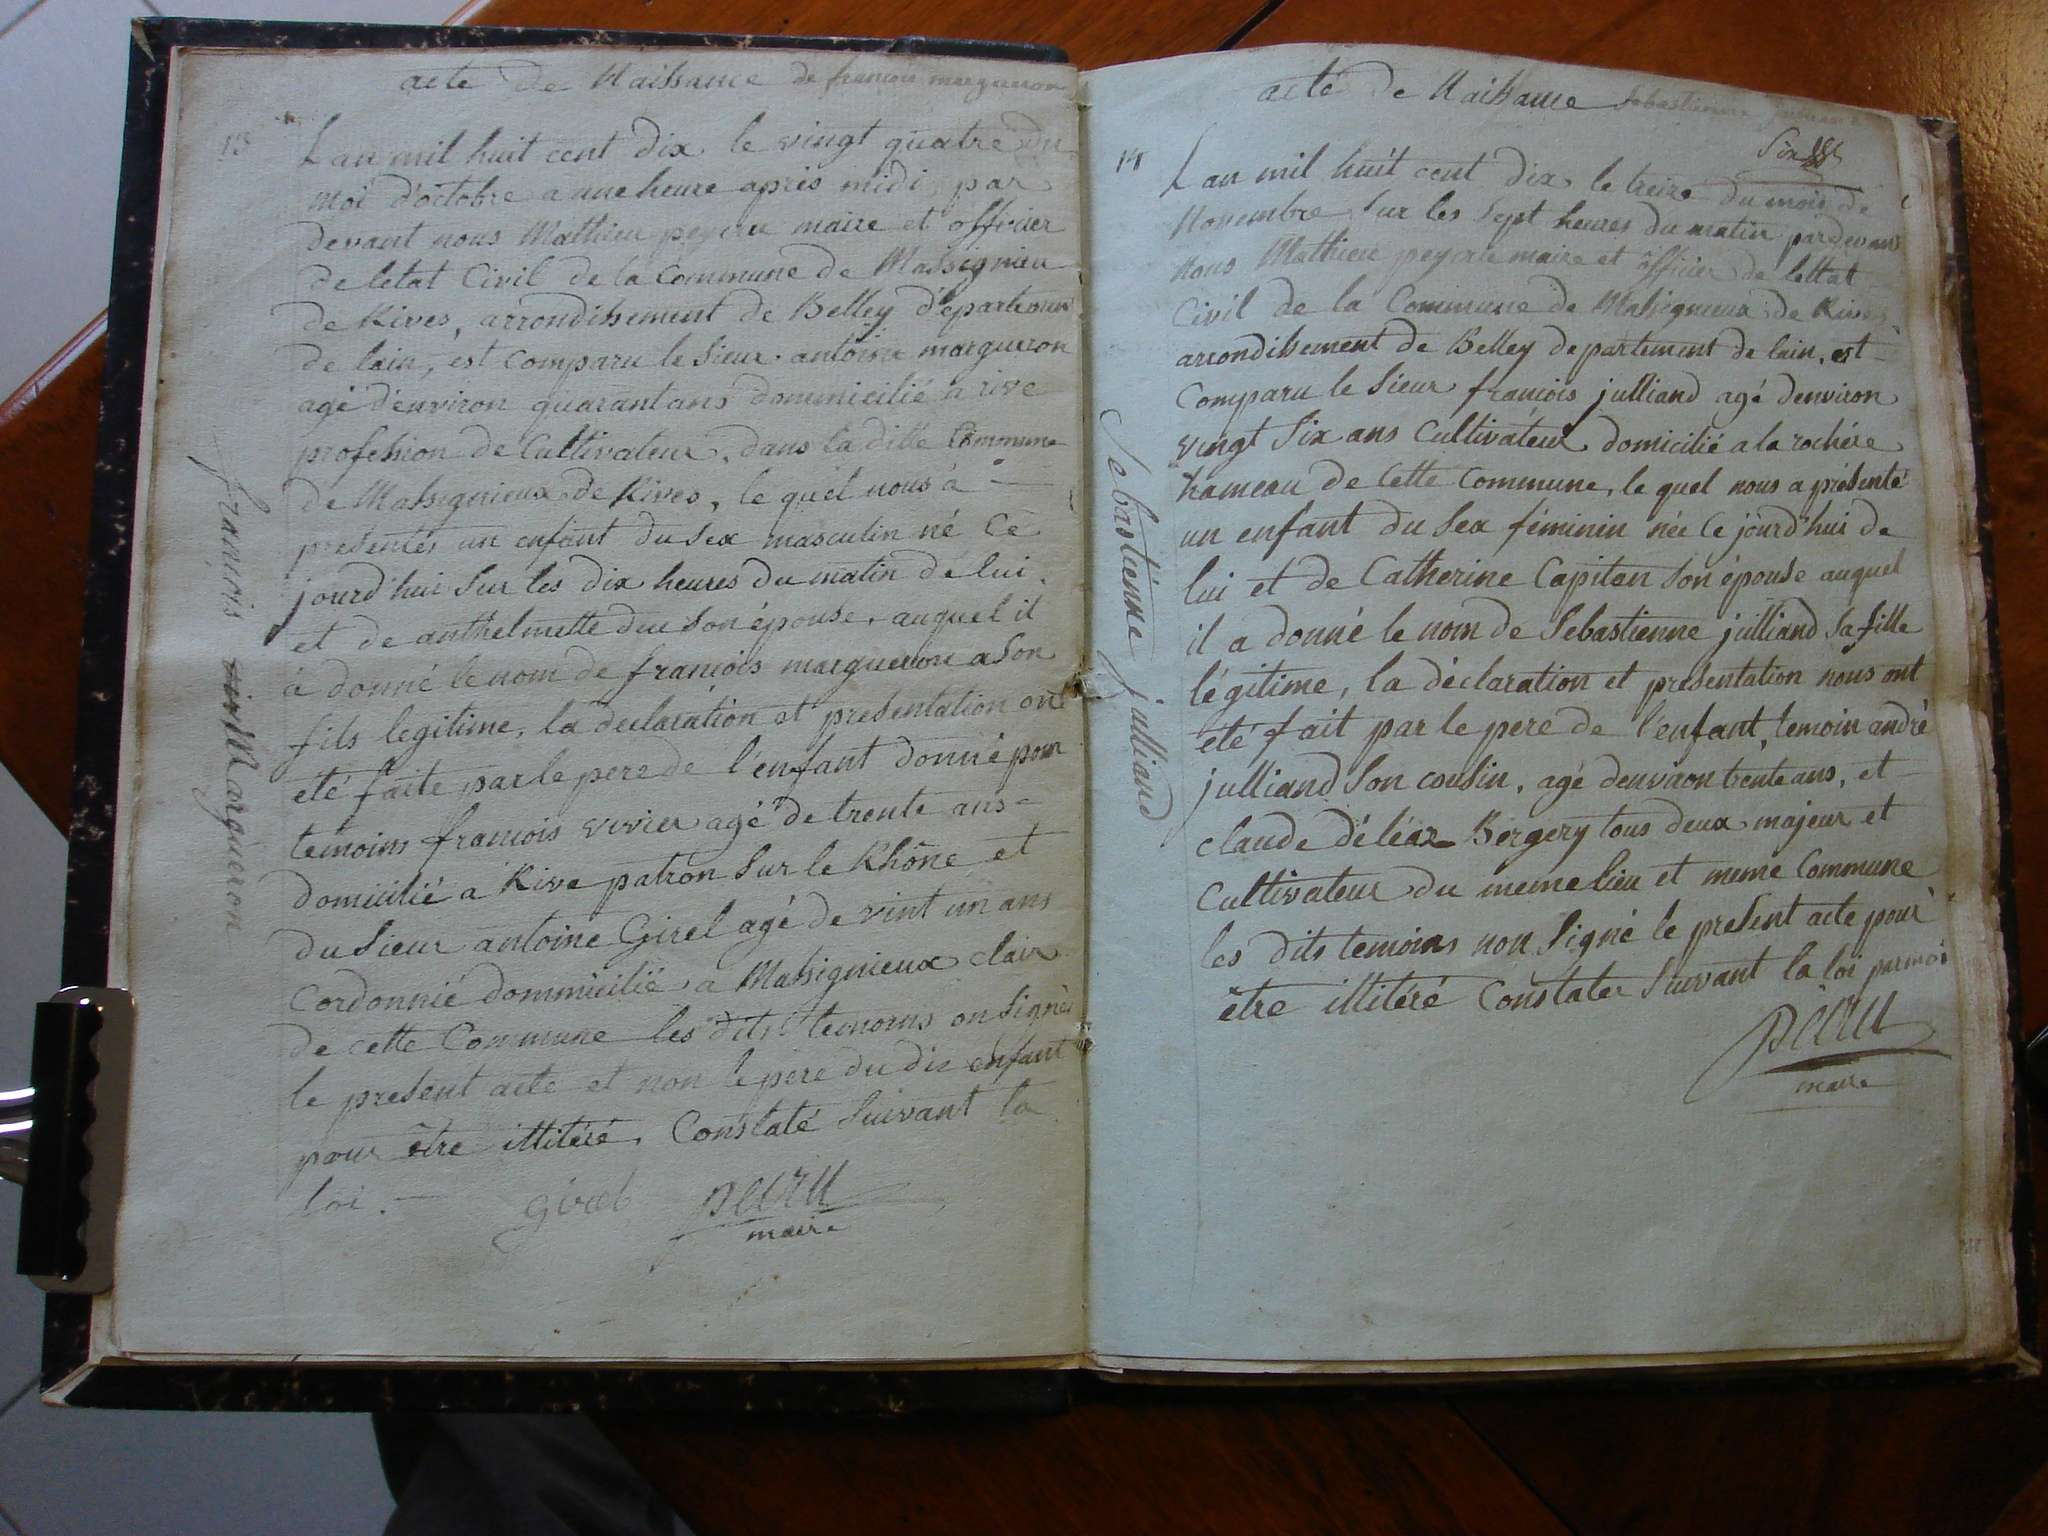 acte de Naissance de francois margueron
13
Lan mil huit cent dix le vingt quatre du
moi d'octobre a une heure après midi par
devant nous Mathieu peyeru maire et officier
de letat Civil de la Commune de Massignieu
de Rives, arrondissement de Belley d'epartement
de lain, est comparu le sieur antoine margueron
agé d'environ quarant ans dommicilié a rive
profession de Cultivateur, dans la dille Commune
de Massignieux de Rives, le quel nous à
presentés un enfant du sex masculin né Ce
jourd'hui sur les dix heures du matin de lui
et de anthelmette duc son épouse, auquel il
à donné le nom de francois margueron a son
fils legitime, la declaration et presentation ont
eté faite par le pere de l'enfant donné pour
temoins francois vivier agé de trente ans
domicilié a Rive patron sur le Rhône et
du sieur antoine Girel agé de vint un ans
Cordonnié dommicilié a Massignieux clair
de cette Commune les dits temoins on signés
le present acte et non le pere du dit enfant
pour être illitéré, Constaté suivant la
loi.
girel peyru
maire
francois Margueron
acte de Naissance Sebastienne
14
Lan mil huit cent dix le treize du mois de
Novembre sur les sept heures du matin pardevant
nous Mathieu peyeru maire et officier de lettat
Civil de la Commune de Massignieux de Rives
arrondissement de Belley departement de lain, est
Comparu le sieur francois julliand agé denviron
vingt six ans Cultivateur domicilié a la rochére
hameau de Cette Commune, le quel nous a présenté
un enfant du sex féminin née Ce jourd'hui de
lui et de Catherine Capitan son épouse auquel
il a donné le nom de Sebastienne julliand sa fille
légitime, la déclaration et presentation nous ont
été fait par le pere de l'enfant, temoin andré
julliand son cousin, agé denviron trente ans, et
claude déléaz Bergery tous deux majeur et
Cultivateur du meme lieu et meme Commune
les dits temoins non signé le present acte pour
être illitéré Constater suivant la loi par moi
peyru
maire
Sebastienne julliand